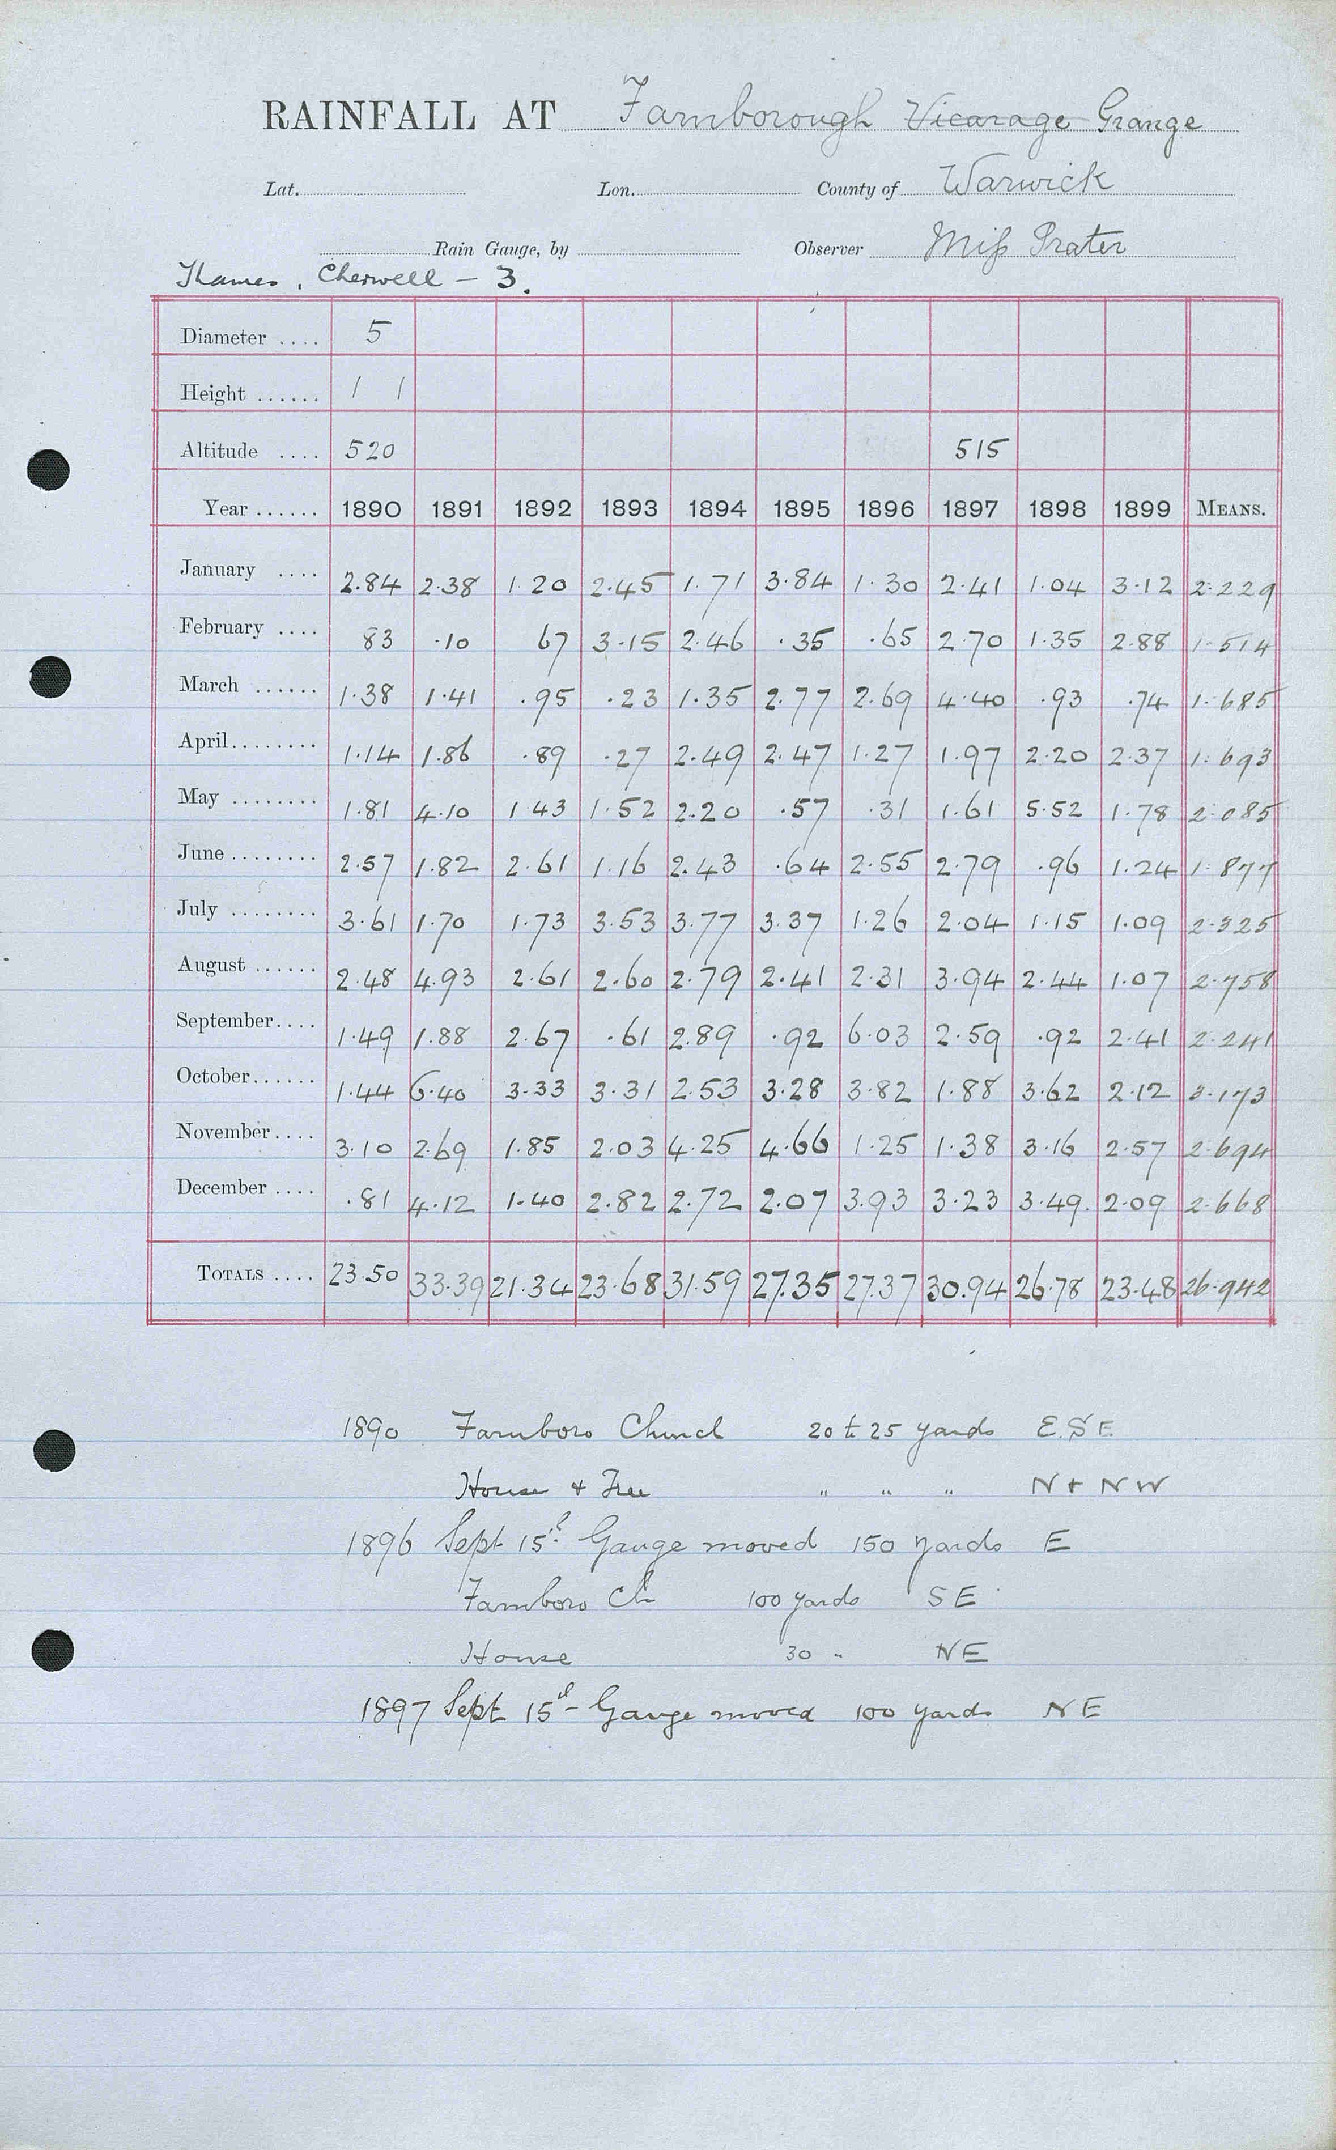 RAINFALL AT Farnborough Vicarage Grange
Lat. Lon. County of Warwick
Rain Gauge, by Observer Miss Prater
Thames, Cherwell - 3.
Diameter .... 5
Height ...... 1 1
Altitude .... 520 515
Year ...... 1890 1891 1892 1893 1894 1895 1896 1897 1898 1899 MEANS.
January .... 2.84 2.38 1.20 2.45 1.71 3.84 1.30 2.41 1.04 3.12 2.229
February .... 83 .10 67 3.15 2.46 .35 .65 2.70 1.35 2.88 1.514
March ...... 1.38 1.41 .95 .23 1.35 2.77 2.69 4.40 .93 .74 1.685
April........ 1.14 1.86 .89 .27 2.49 2.47 1.27 1.97 2.20 2.37 1.693
May ........ 1.81 4.10 1.43 1.52 2.20 .57 .31 1.61 5.52 1.78 2.085
June ........ 2.57 1.82 2.61 1.16 2.43 .64 2.55 2.79 .96 1.24 1.877
July ........ 3.61 1.70 1.73 3.53 3.77 3.37 1.26 2.04 1.15 1.09 2.325
August ...... 2.48 4.93 2.61 2.60 2.79 2.41 2.31 3.94 2.44 1.07 2.758
September.... 1.49 1.88 2.67 .61 2.89 .92 6.03 2.59 .92 2.41 2.241
October...... 1.44 6.40 3.33 3.31 2.53 3.28 3.82 1.88 3.62 2.12 3.173
November.... 3.10 2.69 1.85 2.03 4.25 4.66 1.25 1.38 3.16 2.57 2.694
December .... .81 4.12 1.40 2.82 2.72 2.07 3.93 3.23 3.49. 2.09 2.668
TOTALS .... 23.50 33.39 21.34 23.68 31.59 27.35 27.37 30.94 26.78 23.48 26.942
1890 Farnboro Church 20 to 25 yards E.S.E
House & Tree " " " N & NW
1896 Sept 15th Gauge moved 150 yards E
Farnboro Ch 100 yards SE
House 30 " NE
1897 Sept 15th Gauge moved 100 yards NE